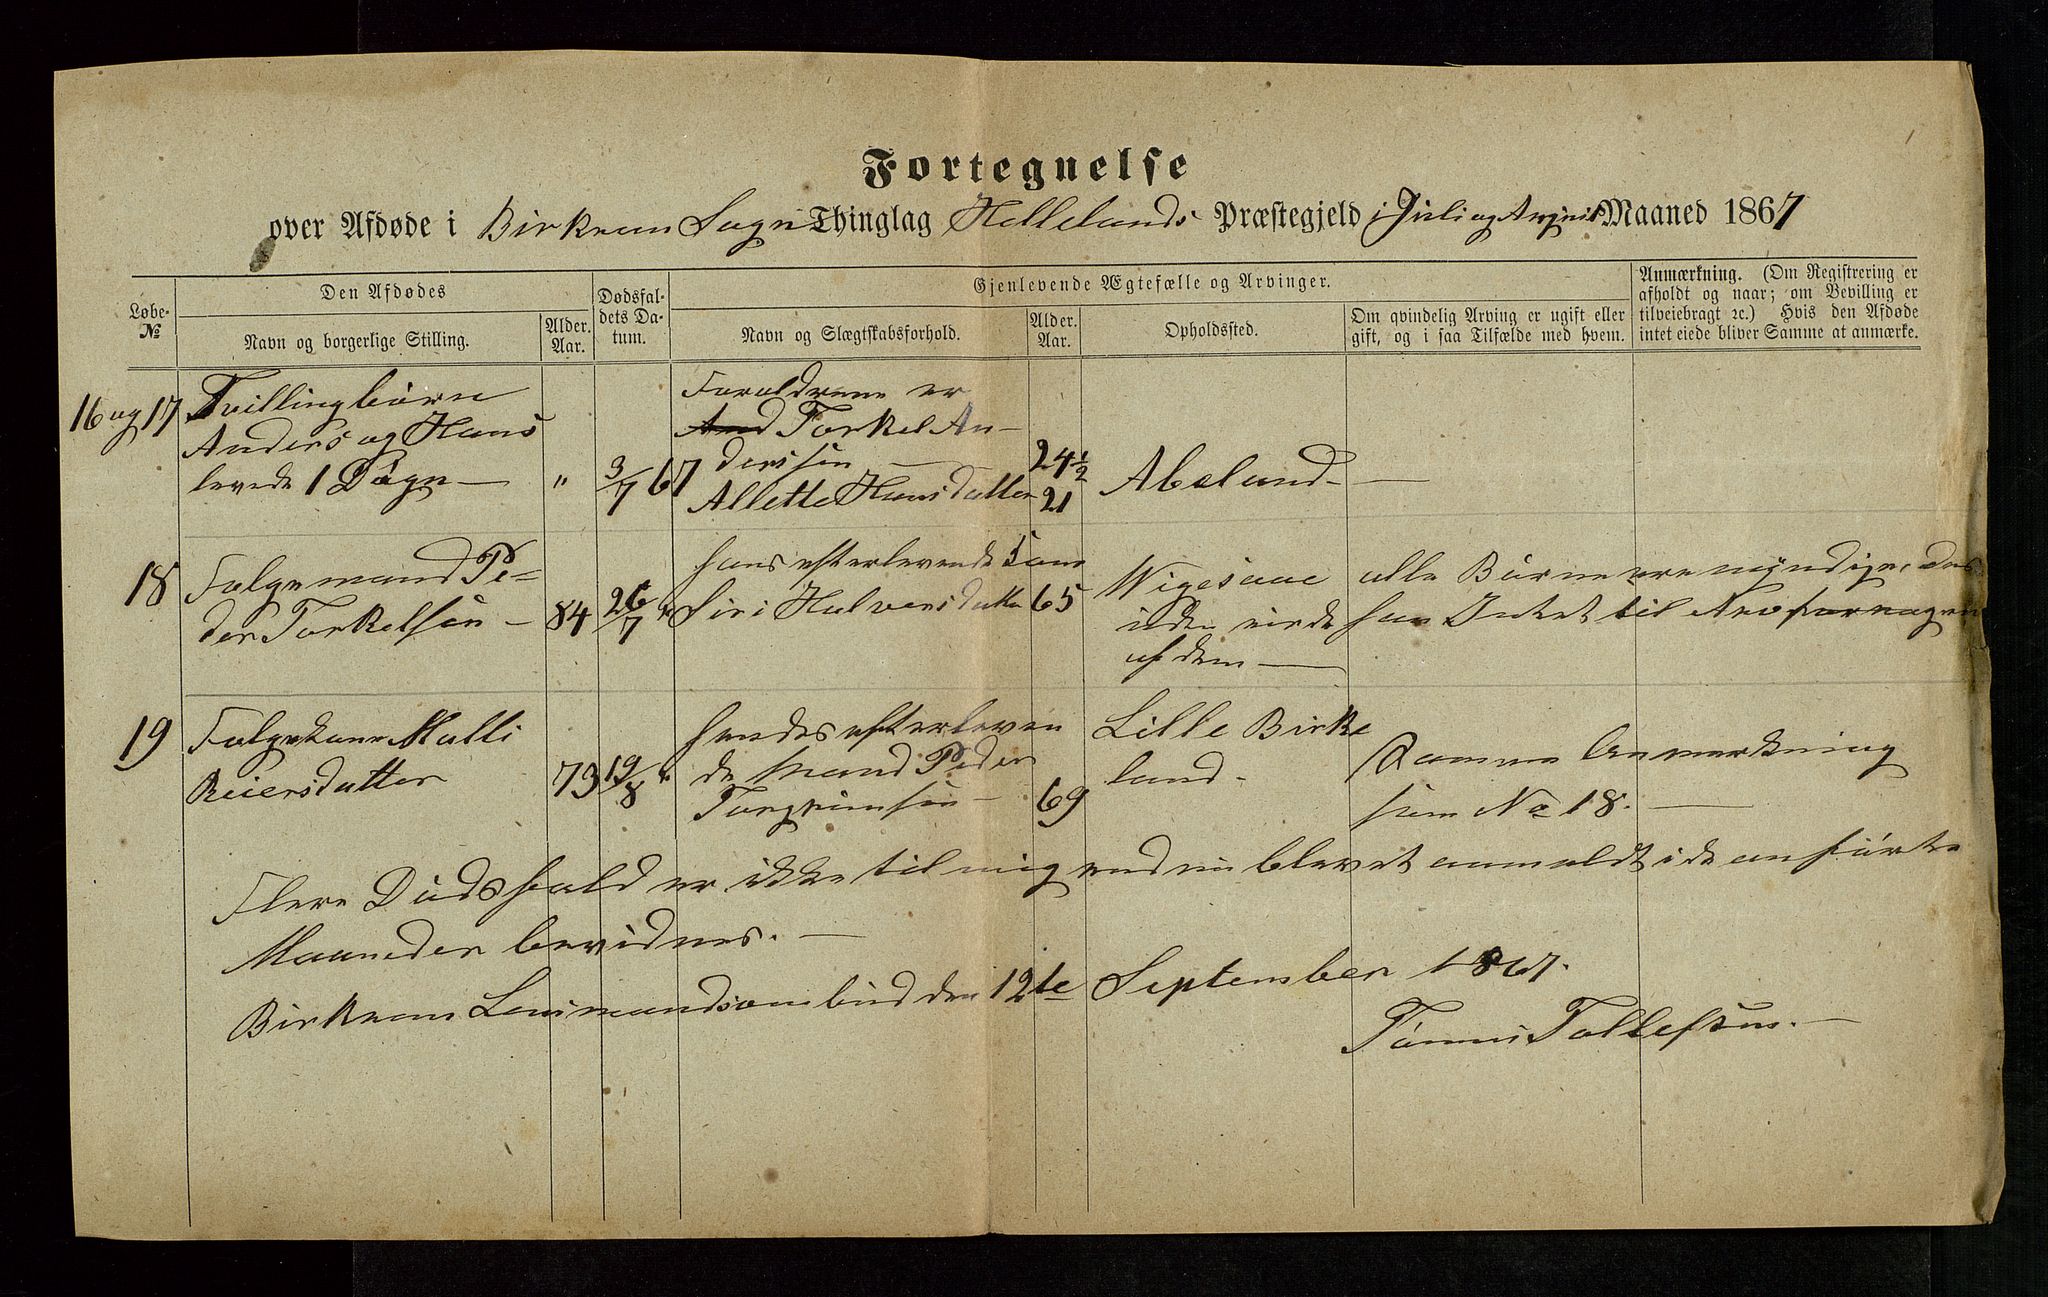 Fortegnelse
over Afdøde i Birkrem Sogn Thinglag Hellelands Præstegjeld i Juli og August Maaned 1867
Løbe-No
Den Afdødes
Navn og borgerlige Stilling.
Alder. Aar.
Dødsfaldets Datum.
Gjenlevende Ægtefælle og Arvinger.
Navn og Slægtskabsforhold.
Alder. Aar.
Opholdssted.
Om qvindelig Arving er ugift eller
gift, og i saa Tilfælde med hvem.
Anmærkning. (Om Registrering er
afholdt og naar; om Bevilling er
tilveiebragt ec.) Hvis den Afdøde
intet eiede bliver Samme at anmærke.
16 og 17
Tvillingbørn
Anders og Hans
levede 1 Døgn —
"
3/7 67
Forældrene er
And Torkel An-
derssen —
24 1/2
Allette Hansdatter
21
Abeland —
18
Folgemand Pe-
der Torkelsen —
84
26/7 "
hans efterlevende Kone
Siri Halversdatter
65
Wigesaae
alle Børn ere myndige, des
uden eiede han Intet til Arv for nogen
af dem —
19
Folgekone Malli
Reiersdatter
79
19/8 "
hendes efterleven
de Mand Peder
Torgrimsen —
69
Lille Birke
land —
Samme Anmærkning
som No 18. —
Flere Dødsfald er ikke til mig endnu blevet anmeldt i de anførte
Maaneder bevidnes. —
Birkrem Lensmandsombud den 12te September 1867.
Tønnes Tollefsen. —